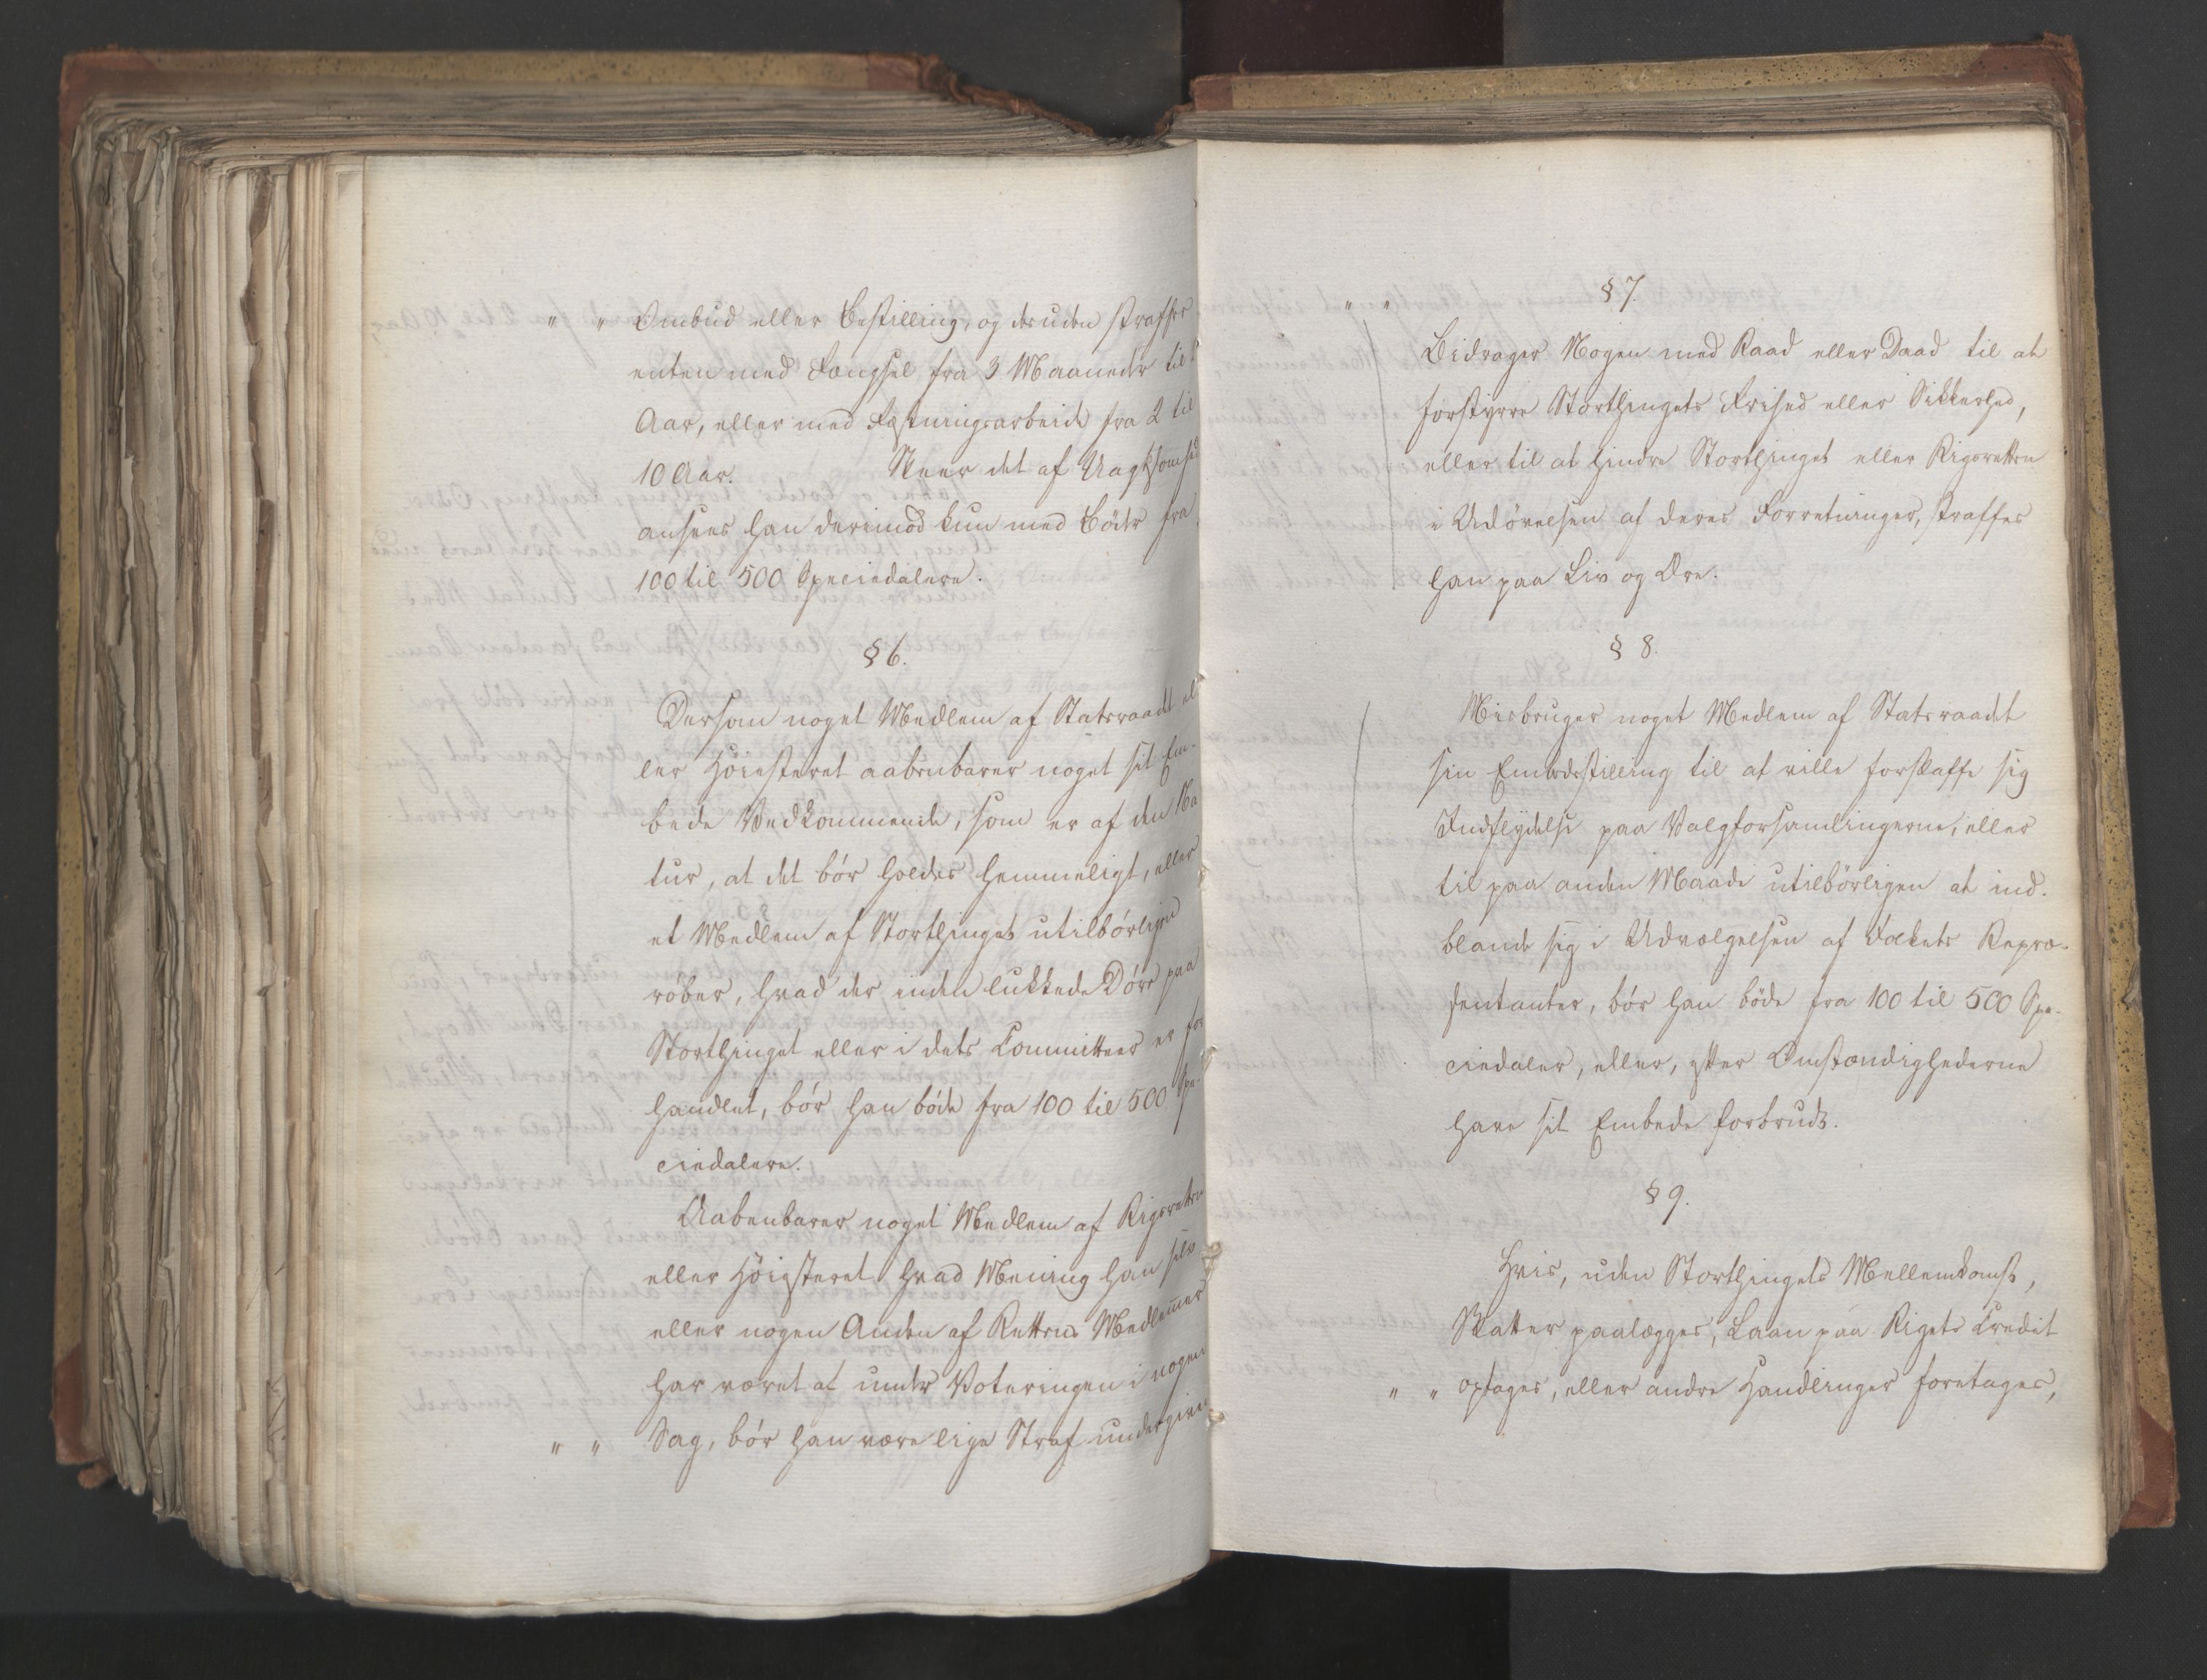 " " Ombud eller Bestilling, og desuden straffes
enten med Fængsel fra 3 Maaneder til
Aar, eller med Fæstningsarbeide fra 2 til
10 Aar. Skeer det af Uagtsomhed
ansees han derimod kun med Böder fra
100 til 500 Speciedalere.
§ 6.
Dersom noget Medlem af Statsraadet el
ler Höiesteret aabenbarer noget sit Em-
bede Vedkommende, som er af den Na
tur, at det bör holdes hemmeligt, eller
et Medlem af Storthinget utilbörligen
röber, hvad der inden lukkede Döre paa
Storthinget eller i dets Committeer er for
handlet, bör han böde fra 100 til 500 Spe-
ciedalere.
Aabenbarer noget Medlem af Rigsretten
eller Höiesteret hvad Mening han selv
eller nogen Anden af Rettens Medlemmer
har været af under Voteringen i nogen
" " Sag, bör han være lige Straf undergiven
" " § 7.
Bidrager Nogen med Raad eller Daad til at
forstyrre Storthingets Frihed eller Sikkerhed,
eller til at hindre Storthinget eller Rigsretten
i Udövelsen af deres Forretninger, straffes
han paa Liv og Ære.
§ 8.
Misbruger noget Medlem af Statsraadet
sin Embedsstilling til at ville forskaffe sig
Indflydelse paa Valgforsamlingerne, eller
til paa anden Maade utilbörligen at ind-
blande sig i Udvælgelsen af Folkets Repræ-
sentanter, bör han böde fra 100 til 500 Spe-
ciedaler, eller, efter Omstændighederne
have sit Embede forbrudt.
§ 9.
Hvis, uden Storthingets Mellemkomst,
Skatter paalægges, Laan paa Rigets Credit
" " optages, eller andre Handlinger foretages,